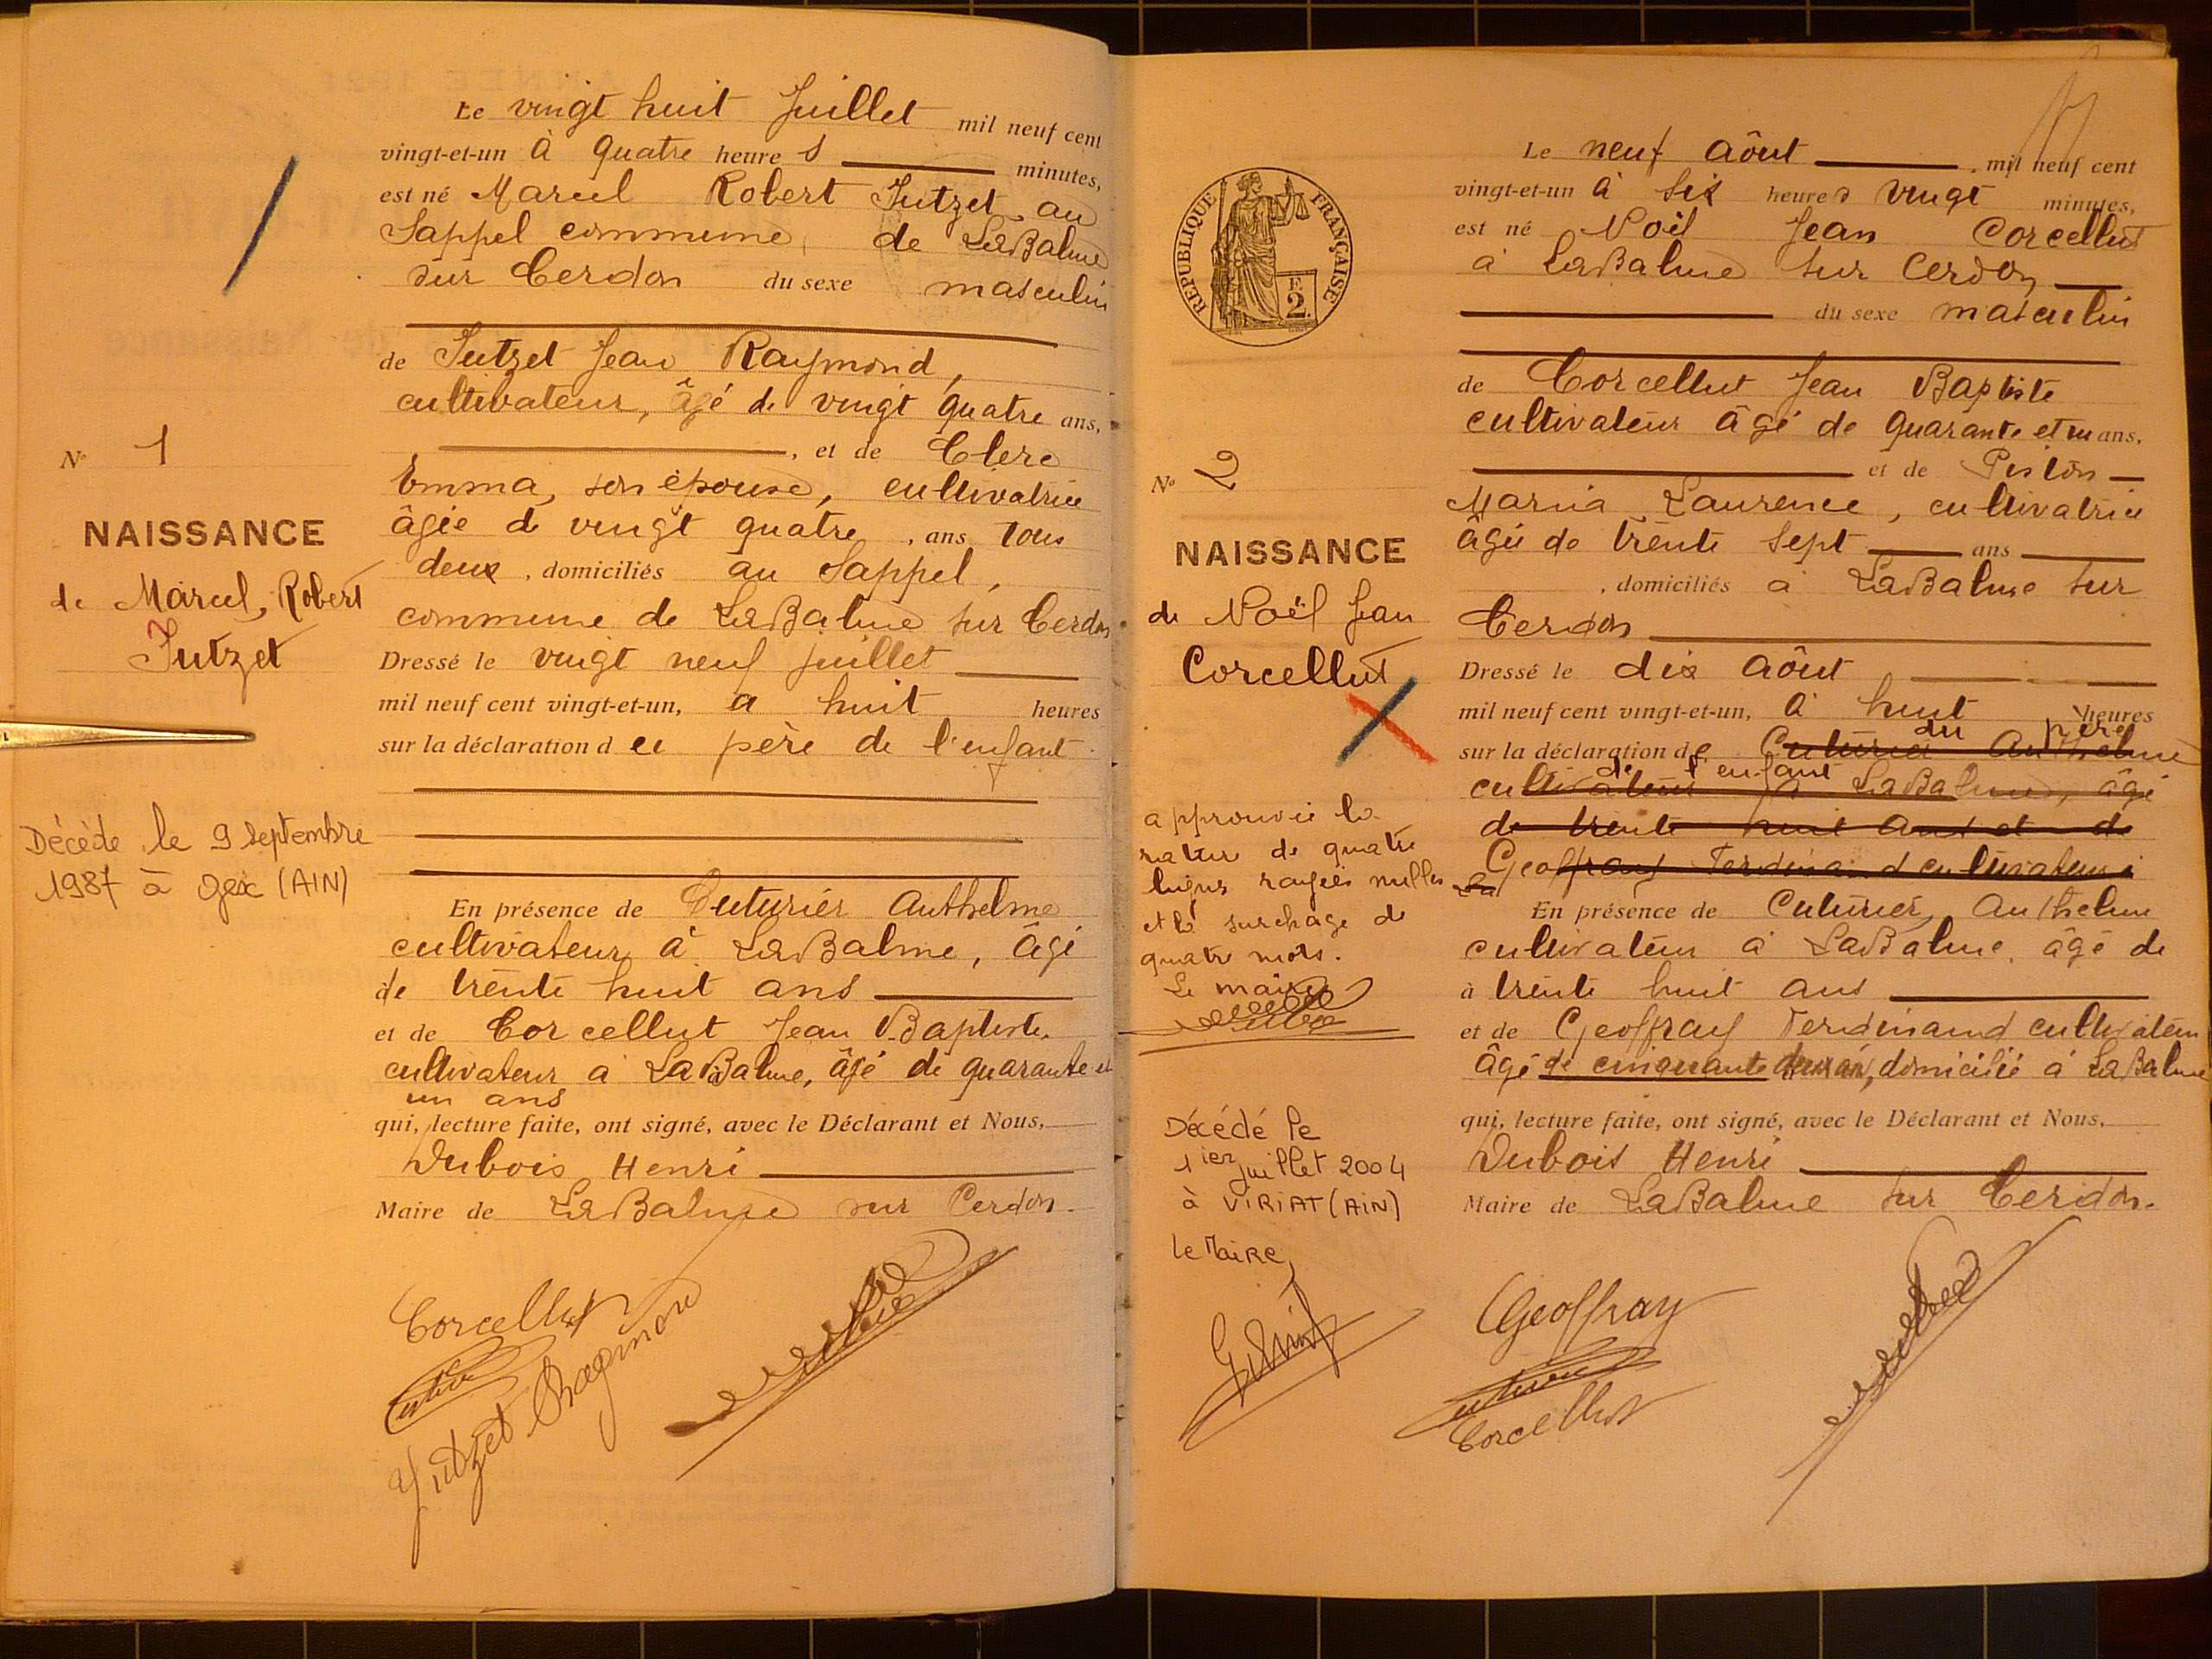 Le vingt huit Juillet mil neuf cent
vingt-et-un à quatre heures minutes,
est né Marcel Robert Jutzet au
Sappel commune de La Balme
sur Cerdon du sexe masculin
de Jutzet Jean Raymond,
cultivateur, âgé de vingt quatre ans,
, et de Clerc
Emma, son épouse, cultivatrice
âgée de vingt quatre , ans tous
deux , domiciliés au Sappel,
commune de La Balme sur Cerdon
Dressé le vingt neuf juillet
mil neuf cent vingt-et-un, à huit heures
sur la déclaration du père de l'enfant.
En présence de Cuturier Anthelme
cultivateur à La Balme, âgé
de trente huit ans
et de Corcellut Jean Baptiste.
cultivateur à La Balme, âgé de quarante et
un ans
qui, lecture faite, ont signé, avec le Déclarant et Nous,
Dubois Henri
Maire de La Balme sur Cerdon.
Corcellut
Jutzet Raymond
N° 1
NAISSANCE
de Marcel, Robert
Jutzet
Décédé le 9 septembre
1987 à Gex (AIN)
RÉPUBLIQUE FRANÇAISE
F.
2.
N° 2
NAISSANCE
de Noël Jean
Corcellut
approuvée la
rature de quatre
lignes rayées nulles
et la surchage de
quatre mots.
Le maire
Décédé le
1ier juillet 2004
à VIRIAT (AIN)
le Maire,
Le neuf Aôut mil neuf cent
vingt-et-un à six heures vingt minutes,
est né Noël Jean Corcellut
à La Balme sur Cerdon
du sexe masculin
de Corcellut Jean Baptiste
cultivateur âgé de quarante et un ans,
et de Piston
Maria Laurence, cultivatrice
âgée de trente sept ans
, domiciliés à La Balme sur
Cerdon
Dressé le dix Aôut
mil neuf cent vingt-et-un, à huit heures
du père
sur la déclaration de Cuturier Anthelme
de l'enfant
cultivateur à La Balme, âgé
de trente huit ans et de
Geoffray Ferdinand cultivateur à
La
En présence de Cuturier, Anthelme
cultivateur à La Balme, âgé de
à trente huit ans
et de Geoffray Ferdinand cultivateur
âgé de cinquante deux ans, domicilié à La Balme
qui, lecture faite, ont signé, avec le Déclarant et Nous,
Dubois Henri
Maire de La Balme sur Cerdon.
Geoffray
Corcellut